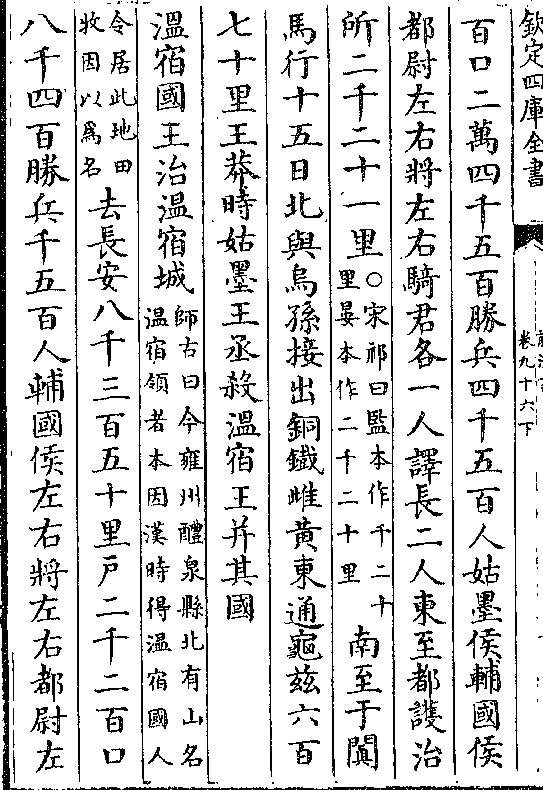 欽定四庫全書
卷九十六下
百口二萬四千五百勝兵四千五百人姑墨侯輔國侯
都尉左右將左右騎君各一人譯長二人東至都護治
所二千二十一里○宋祁曰監本作千二十里晏本作二千二十里南至于闐
馬行十五日北與烏孫接出銅鐵雌黃東通龜茲六百
七十里王莽時姑墨王丞殺溫宿王并其國
溫宿國王治溫宿城師古曰今雍州醴泉縣北有山名溫宿領者本因漢時得溫宿國人
令居此地田牧因以爲名去長安八千三百五十里戶二千二百口
八千四百勝兵千五百人輔國侯左右將左右都尉左